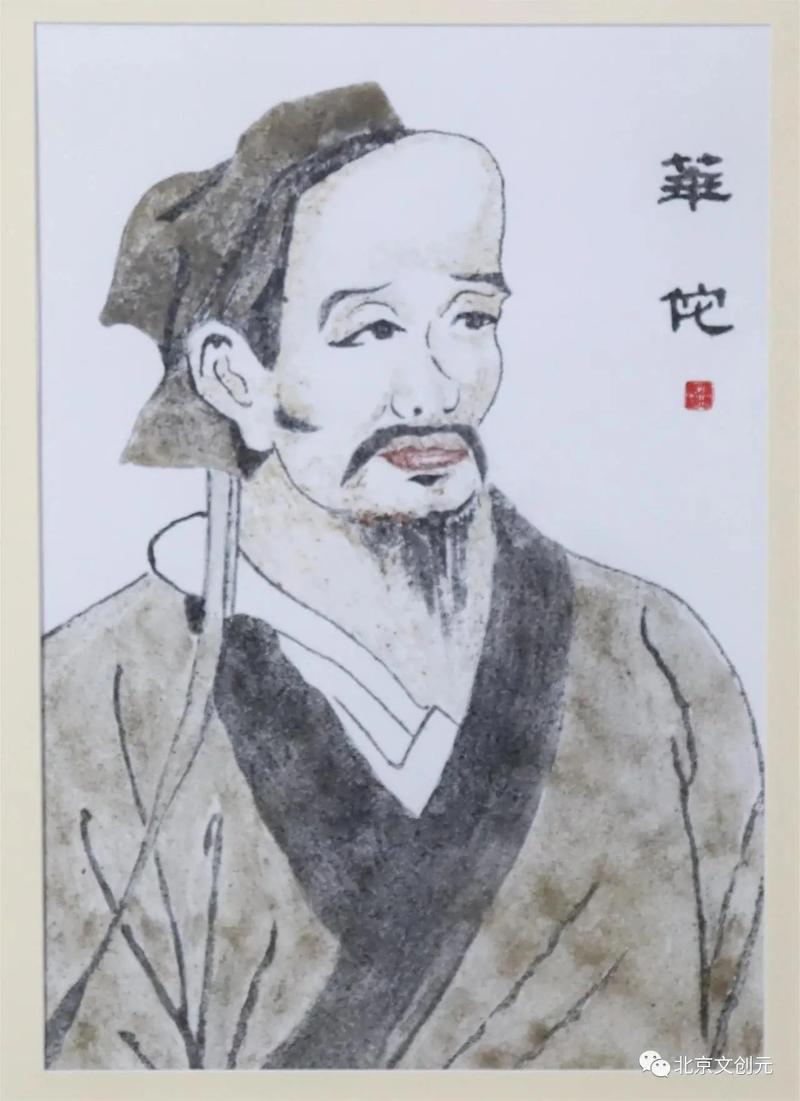 華佗
北京文创元